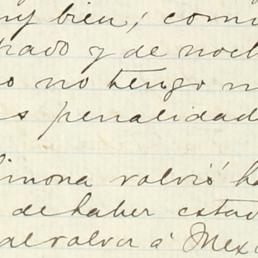 uy bien; com
rado y de noch
o no tengo n
s penalidad
imona volvió h
de haber estad
al volver á Mexi